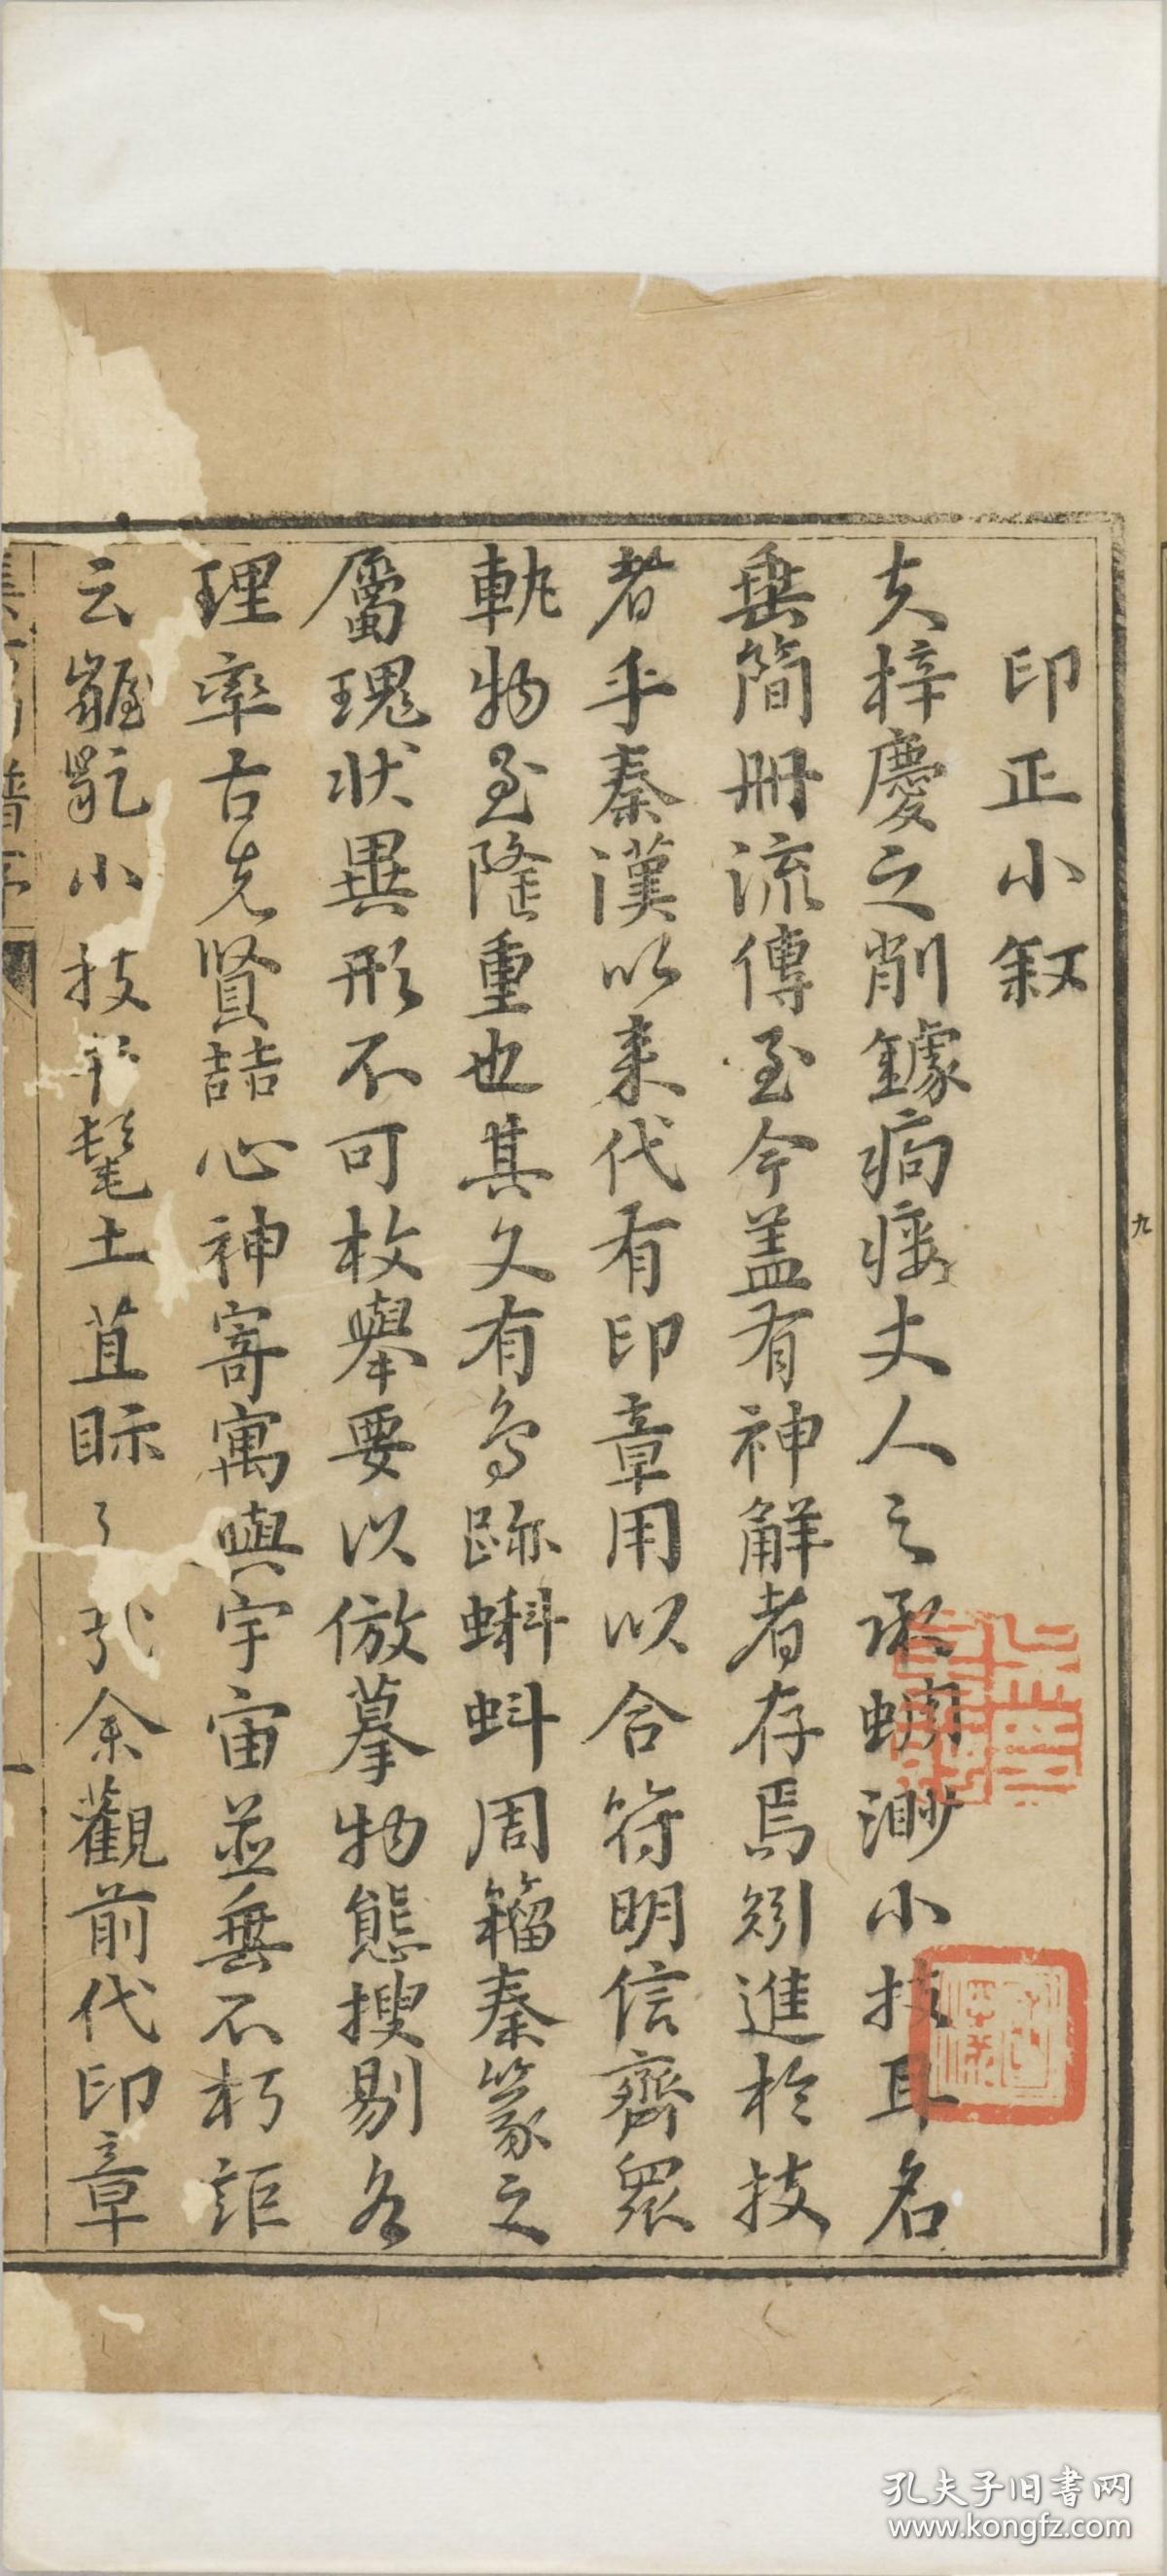 印正小敘
夫梓慶之削鐻痀瘻丈人之承蜩渺小技耳名
垂簡冊流傳至今盖有神解者存焉矧進於技
者乎秦漢以来代有印章用以合符明信齊衆
軌物至隆重也其文有鳥跡蝌蚪周籀秦篆之
屬瑰状異形不可枚舉要以倣摹物態搜剔名
理率古先賢喆心神寄寓與宇宙並垂不朽詎
云齷齪小技弁髦土苴眎之 余觀前代印章
九
一
孔夫子旧书网
www.kongfz.com